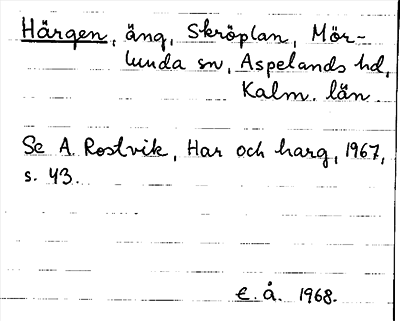 Härgen, äng, Skröplan, Mör-
lunda sn, Aspelands hd,
Kalm. län
Se A. Rostvik, Har och harg, 1967,
s. 43.
E. å. 1968.